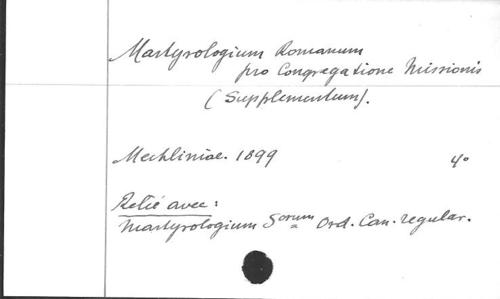 Martyrologium Romanum
pro Congregatione Missionis
(Supplementum).
Mechliniae. 1899
4°
Relié avec:
Martyrologium Sorum Ord. Can. regular.